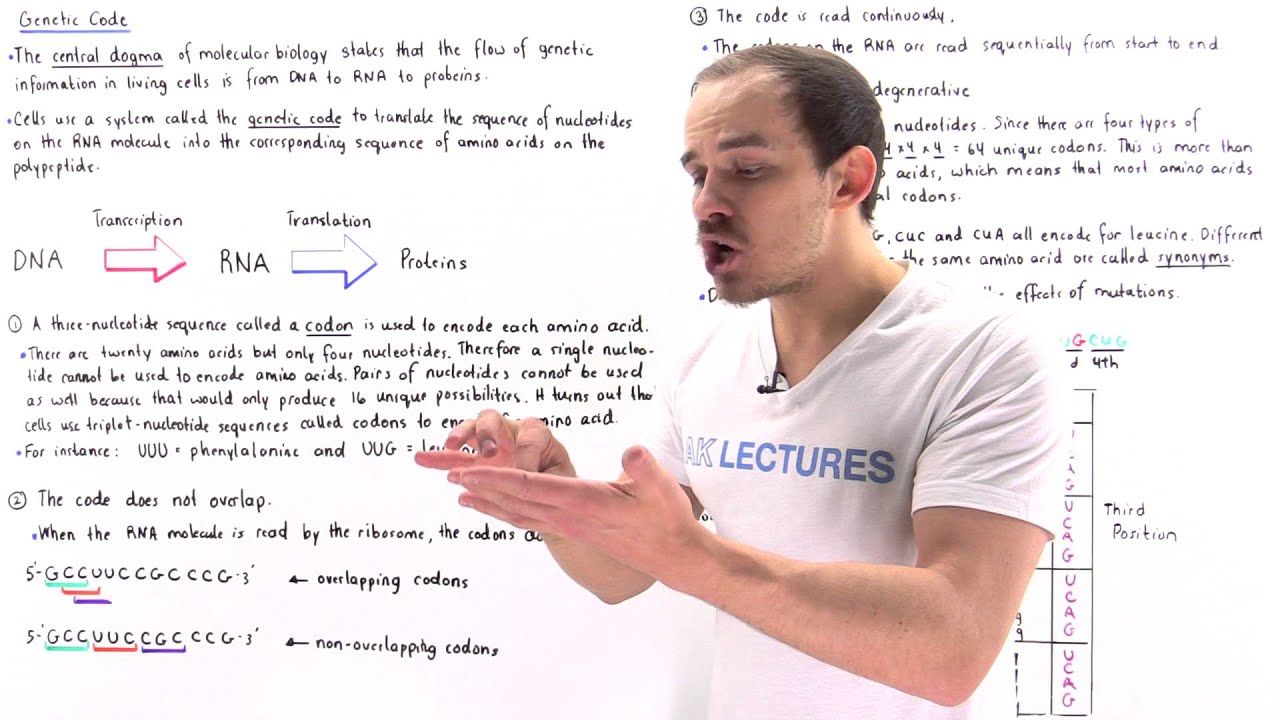 Genetic Code
•The central dogma of molecular biology states that the flow of genetic
information in living cells is from DNA to RNA to proteins.
•Cells use a system called the genetic code to translate the sequence of nucleotides
on the RNA molecule into the corresponding sequence of amino acids on the
polypeptide.
Transcription
Translation
DNA
RNA
Proteins
① A three-nucleotide sequence called a codon is used to encode each amino acid.
•There are twenty amino acids but only four nucleotides. Therefore a single nucleo-
tide cannot be used to encode amino acids. Pairs of nucleotides cannot be used
as well because that would only produce 16 unique possibilities. It turns out that
cells use triplet-nucleotide sequences called codons to amino acid.
•For instance: UUU = phenylalanine and UUG =
② The code does not overlap.
•When the RNA molecule is read by the ribosome, the codons
5'-GCCUUCCGCCCG-3' ← overlapping codons
5'-GCCUUCCGCCCG-3' ← non-overlapping codons
③ The code is read continuously.
•The codons on the RNA are read sequentially from start to end.
degenerative
nucleotides. Since there are four types of
4 x 4 x 4 = 64 unique codons. This is more than
acids, which means that most amino acids
codons.
G, CUC and CUA all encode for leucine. Different
the same amino acid are called synonyms.
the effects of mutations.
UGCUG
4th
AK LECTURES
G
U
C
A
G
Third
Position
U
C
A
G
U
C
A
G